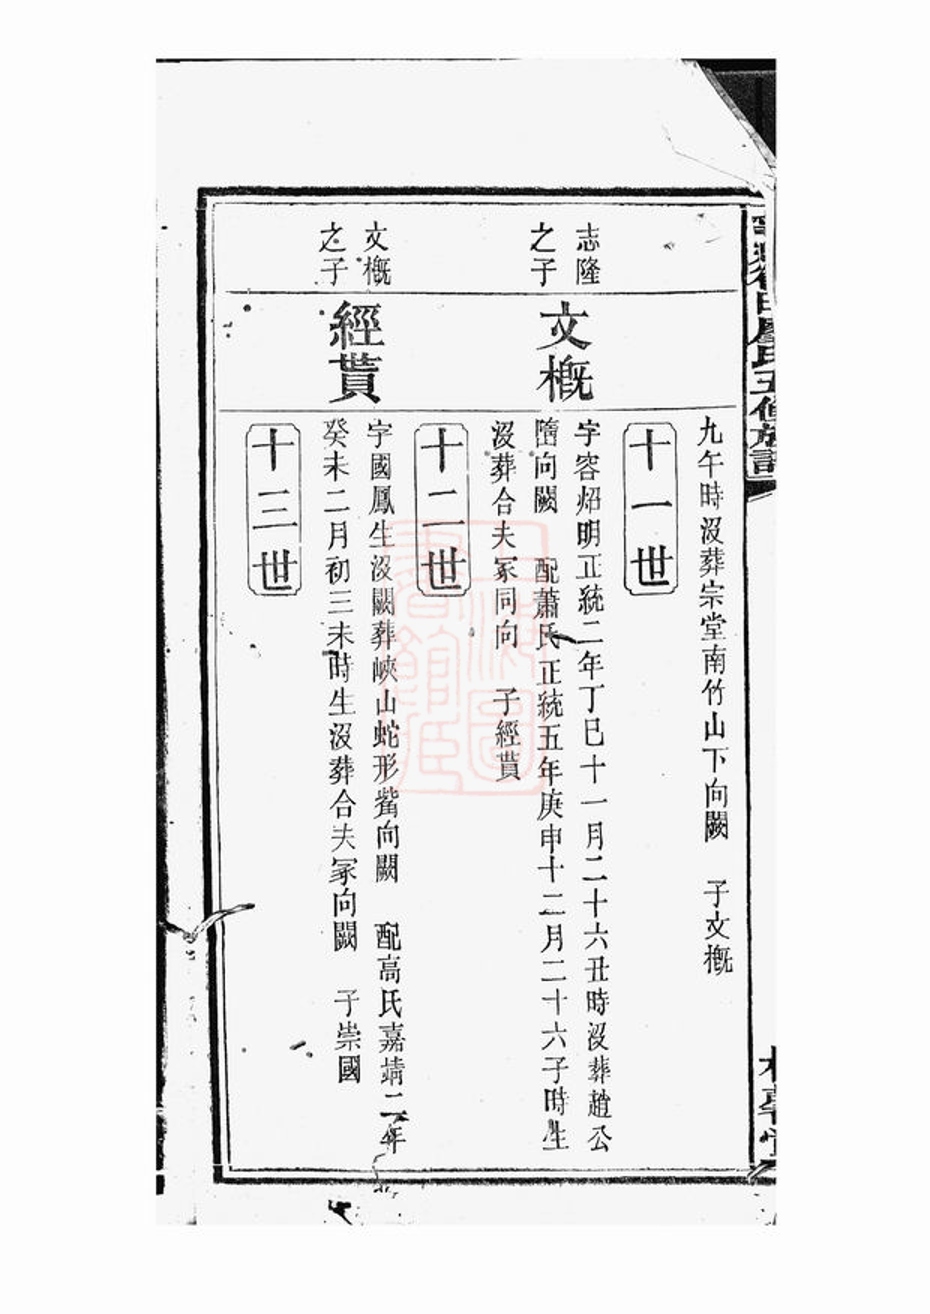 九午時沒葬宗堂南竹山下向闕　子文槪
十一世
志隆
之子
文槪
字容炤明正統二年丁巳十一月二十六丑時沒葬趙公
墮向闕　配蕭氏正統五年庚申十二月二十六子時生
沒葬合夫冢同向　子經貰
十二世
文槪
之子
經貰
字國鳳生沒闕葬峽山蛇形觜向闕　配高氏嘉靖二年
癸未二月初三未時生沒葬合夫冢向闕　子崇國
十三世